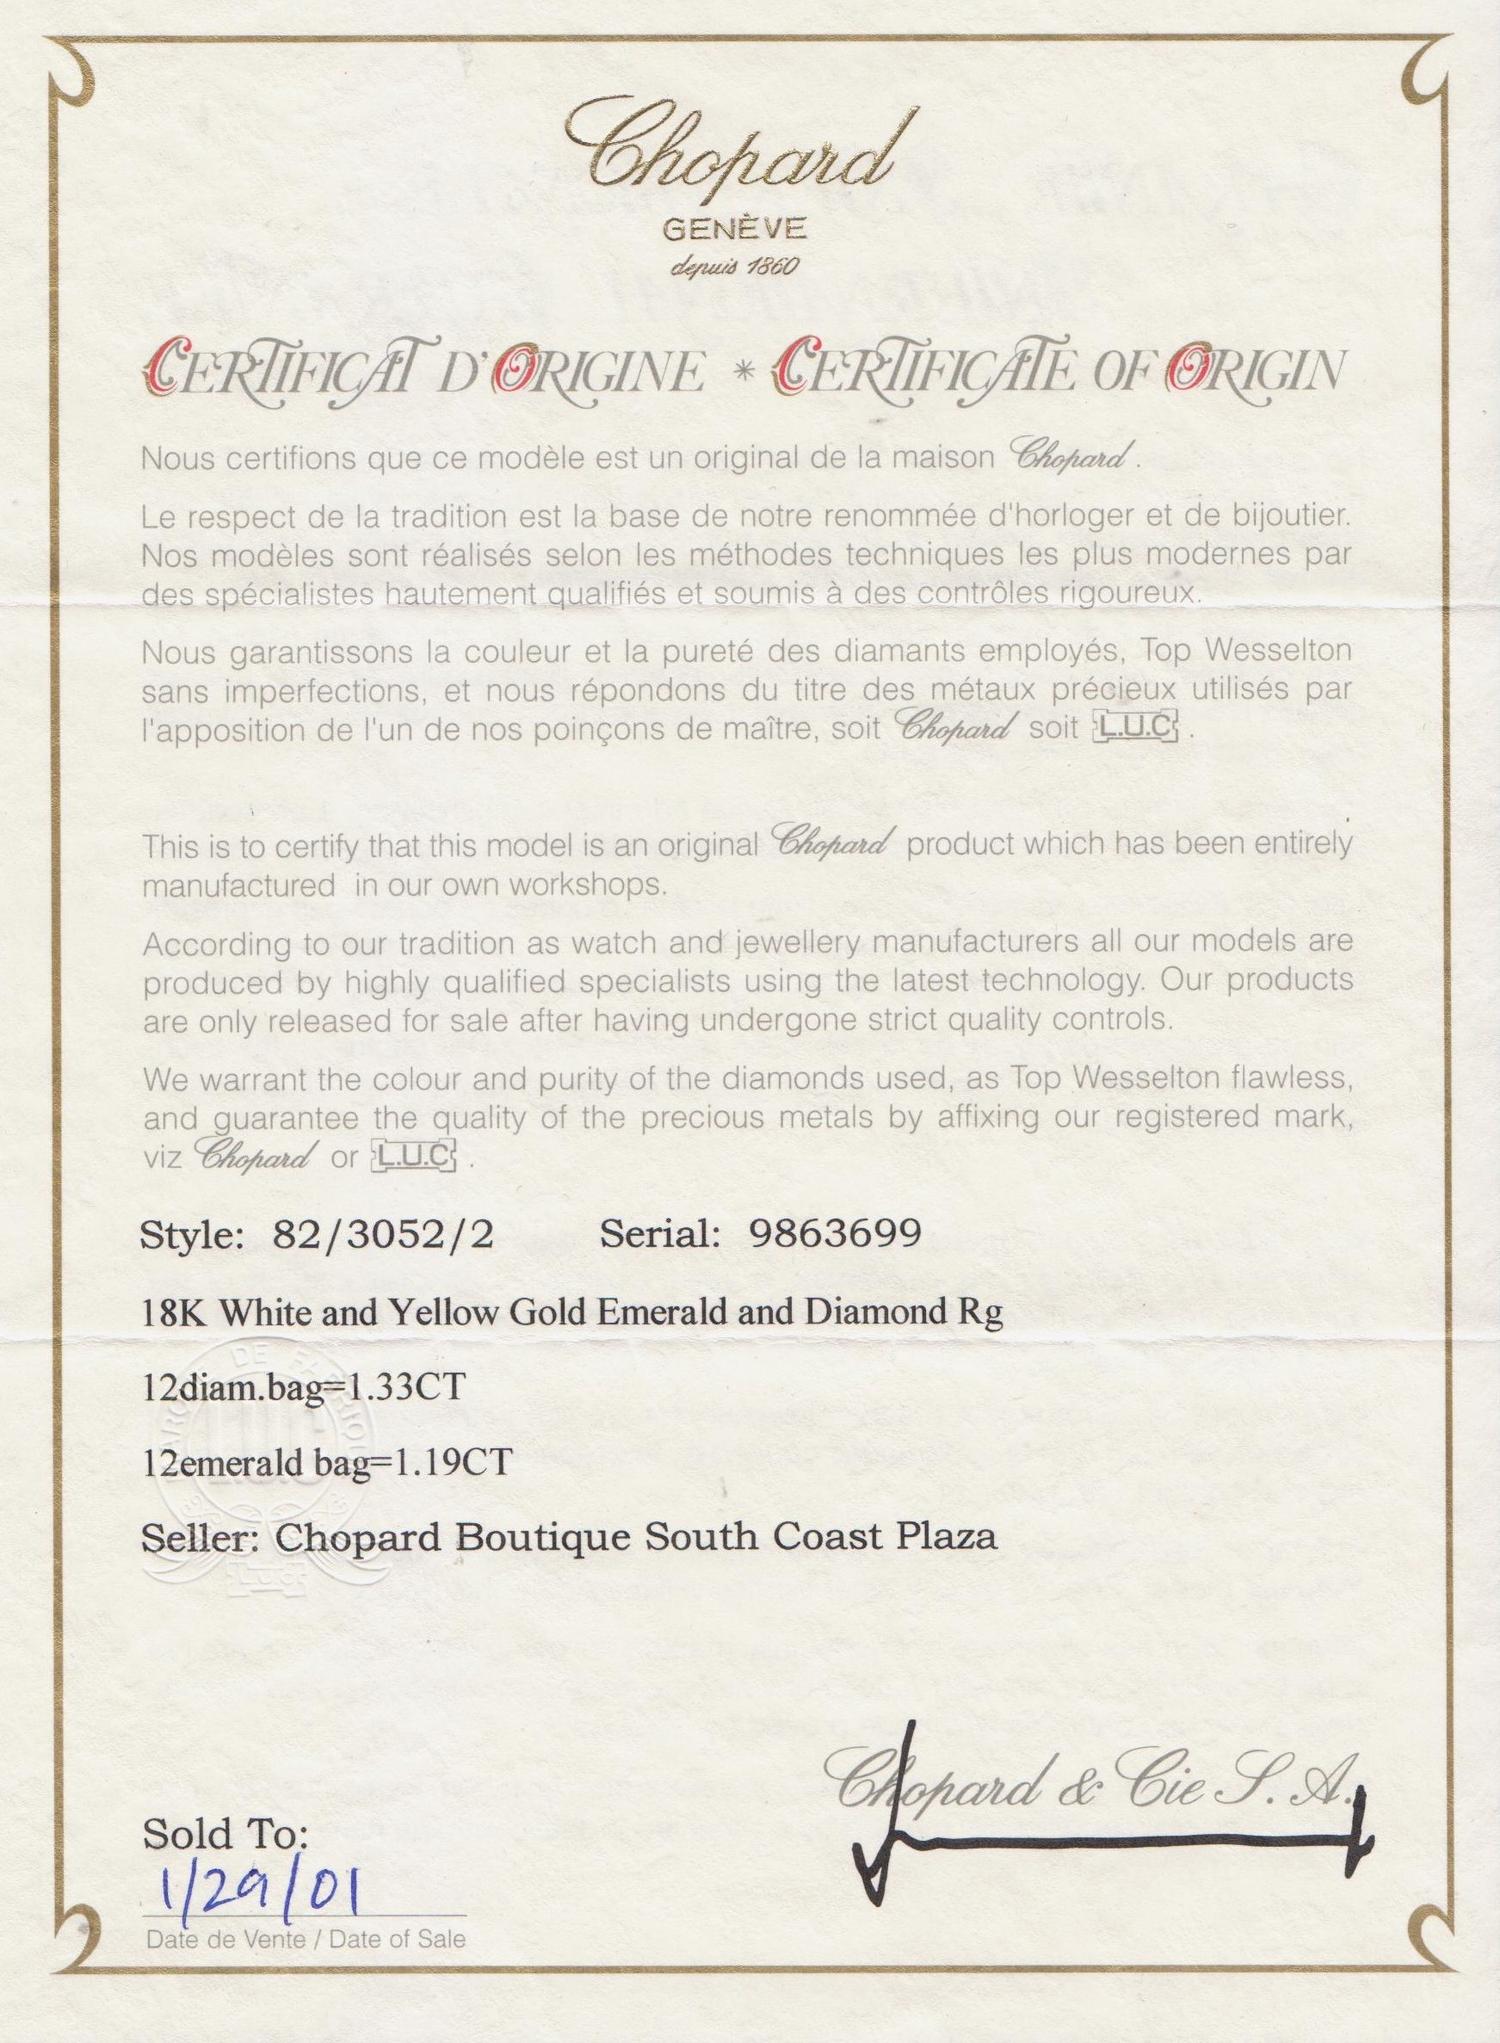 Chopard
GENÈVE
depuis 1860
CERTIFICAT D'ORIGINE * CERTIFICATE OF ORIGIN
Nous certifions que ce modèle est un original de la maison Chopard.
Le respect de la tradition est la base de notre renommée d'horloger et de bijoutier.
Nos modèles sont réalisés selon les méthodes techniques les plus modernes par
des spécialistes hautement qualifiés et soumis à des contrôles rigoureux.
Nous garantissons la couleur et la pureté des diamants employés, Top Wesselton
sans imperfections, et nous répondons du titre des métaux précieux utilisés par
l'apposition de l'un de nos poinçons de maître, soit Chopard soit L.U.C.
This is to certify that this model is an original Chopard product which has been entirely
manufactured in our own workshops.
According to our tradition as watch and jewellery manufacturers all our models are
produced by highly qualified specialists using the latest technology. Our products
are only released for sale after having undergone strict quality controls.
We warrant the colour and purity of the diamonds used, as Top Wesselton flawless,
and guarantee the quality of the precious metals by affixing our registered mark,
viz Chopard or L.U.C.
Style: 82/3052/2 Serial: 9863699
18K White and Yellow Gold Emerald and Diamond Rg
12diam.bag=1.33CT
12emerald bag=1.19CT
Seller: Chopard Boutique South Coast Plaza
Chopard & Cie S. A.
Sold To:
1/29/01
Date de Vente / Date of Sale